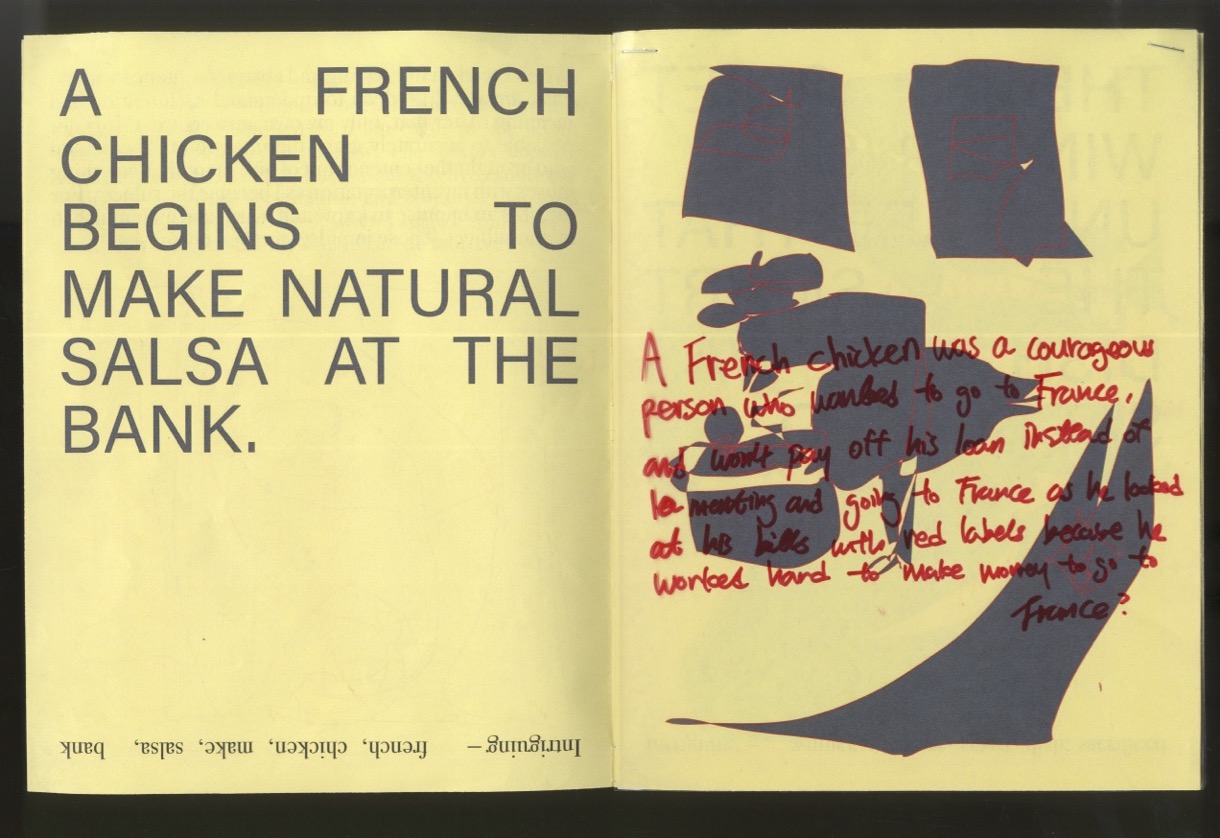 A FRENCH
CHICKEN
BEGINS TO
MAKE NATURAL
SALSA AT THE
BANK.
Intriguing – french, chicken, make, salsa, bank
A French chicken was a courageous
person who wanted to go to France,
and won't pay off his loan instead of
lamenting and going to France as he looked
at his bills with red labels because he
worked hard to make money to go to
France?